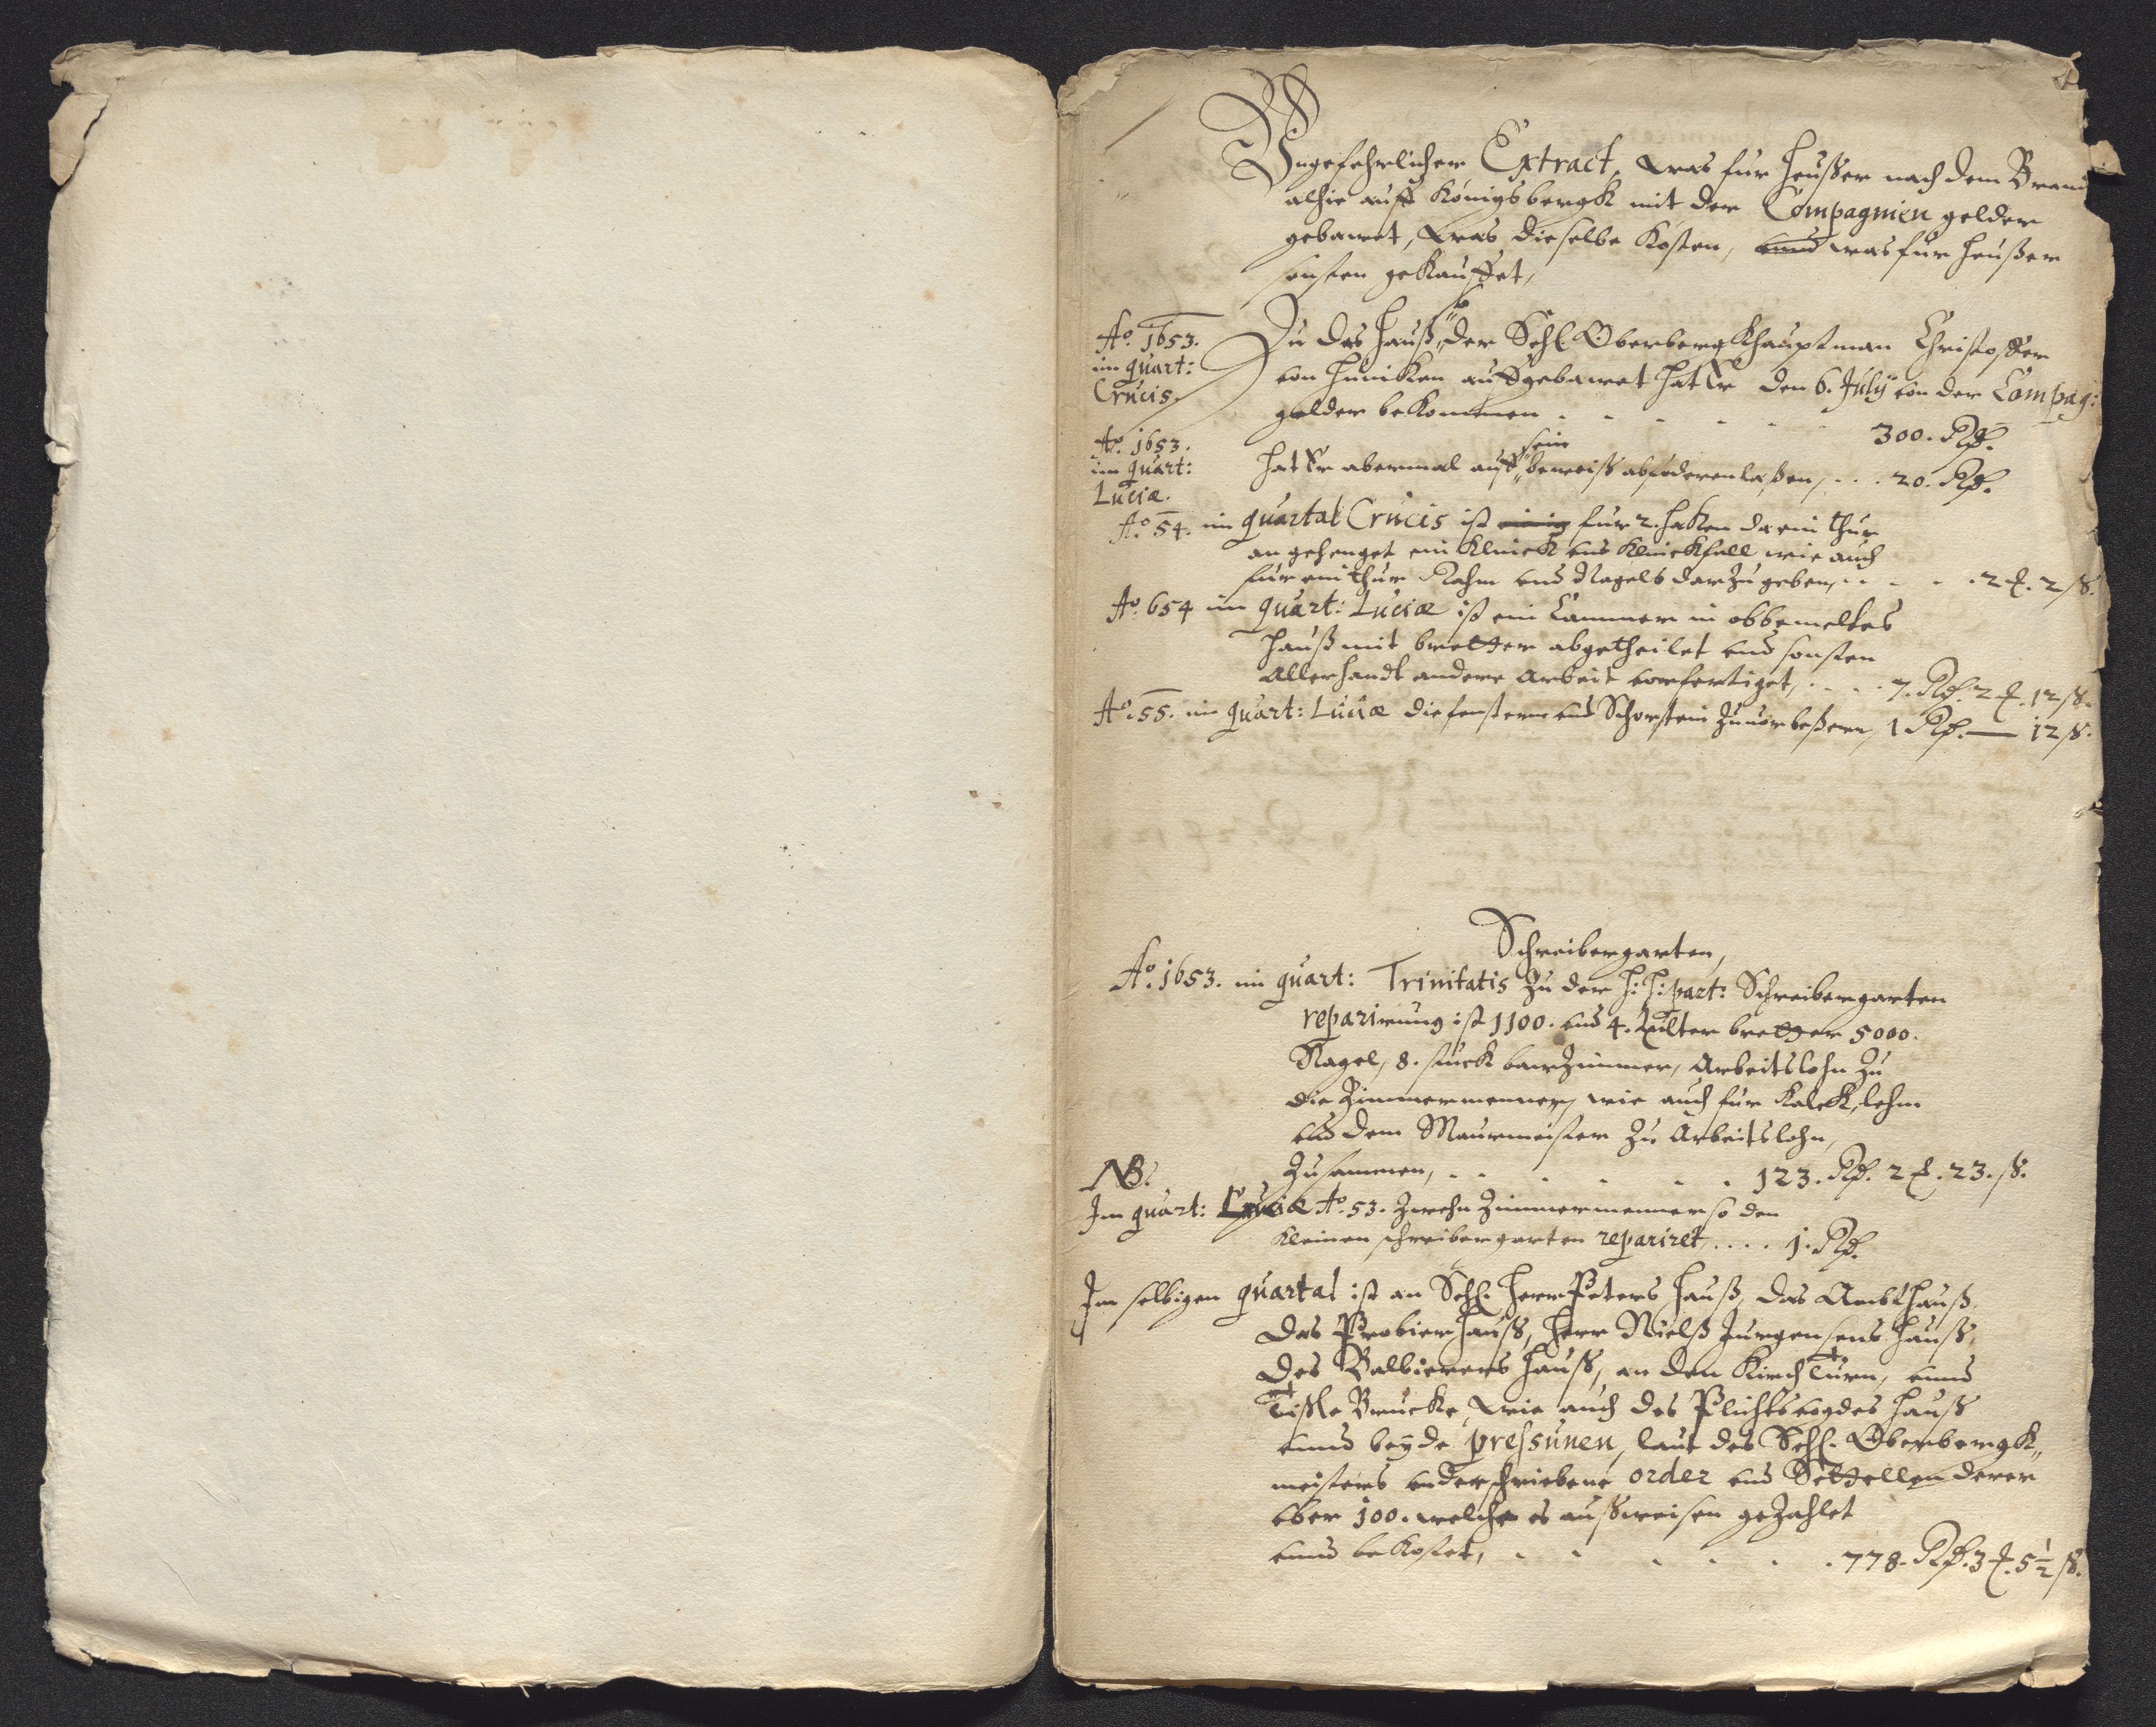 Ungefehrlicher Extract, was fur heußer nach dem Brand
alhie auff Königsbergk mit der Compagnien gelder
gebawet, was dieselbe kosten, vnnd was fur heußer
sonsten gekauffet,
Ao. 1653.
im quart:
Crucis.
Zu das hauß, so der Sehl. Oberbergkhauptman Christoffer
von Hüniken auffgebawet hat Er den 6. July von der Compag:
gelder bekommen . . . . . . 300. Rß.
Ao. 1653.
im quart:
Luciæ.
hat Er abermal auff sein beweiß abfoderen laßen, . . . 20. Rß.
Ao. 54. im quartal Crucis ist fur 2. haken da ein thur
an gehenget ein klinck vnd klinckfall wie auch
fur ein thur Rahm vnd Nagels darzu geben, . . . . 2 ℔. 2 ß.
Ao. 654 im quart: Luciæ ist ein Cammer in obbemeltes
hauß mit bretter abgetheilet vnd sonsten
Allerhandt andere arbeit verfertiget, . . . . 7. Rß. 2 ℔. 12 ß.
Ao. 55. im quart: Luciæ die fenstern vnd Schorstein zu verbeßern, 1 Rß. — 12 ß.
Schreibergarten,
Ao. 1653. im quart: Trinitatis zu der H: H: part: Schreibergarten
reparirung ist 1100. vnd 4. Tulter bretter 5000.
Nagel, 8. stuck bawzimmer, Arbeitslohn zu
die Zimmermenner, wie auch fur Kalck, lehm
vnd dem Maurmeister zu Arbeitslohn,
Zusammen, . . . . . . 123. Rß. 2 ℔. 23. ß.
NB.
Im quart: Luciæ Ao. 53. Zwehn Zimmermenner so den
kleinen schreibergarten repariret, . . . . 1. Rß.
Im selbigen quartal ist an Sehl. Herr Peters hauß, das Ambthauß,
das Probierhauß, Herr Nielß Jurgensens hauß,
des Balbierers hauß, an den Kirch Turn, vnnd
Tißle Brucke, wie auch des Plichtvogdes hauß
vnnd beyde pressunen, laut des Sehl. Oberbergk„
meisters vnderschriebene order vnd Settellen derer
vber 100. welche es außweisen gezahlet
vnnd bekostet, . . . . . . 778. Rß. 3 ℔. 5½ ß.